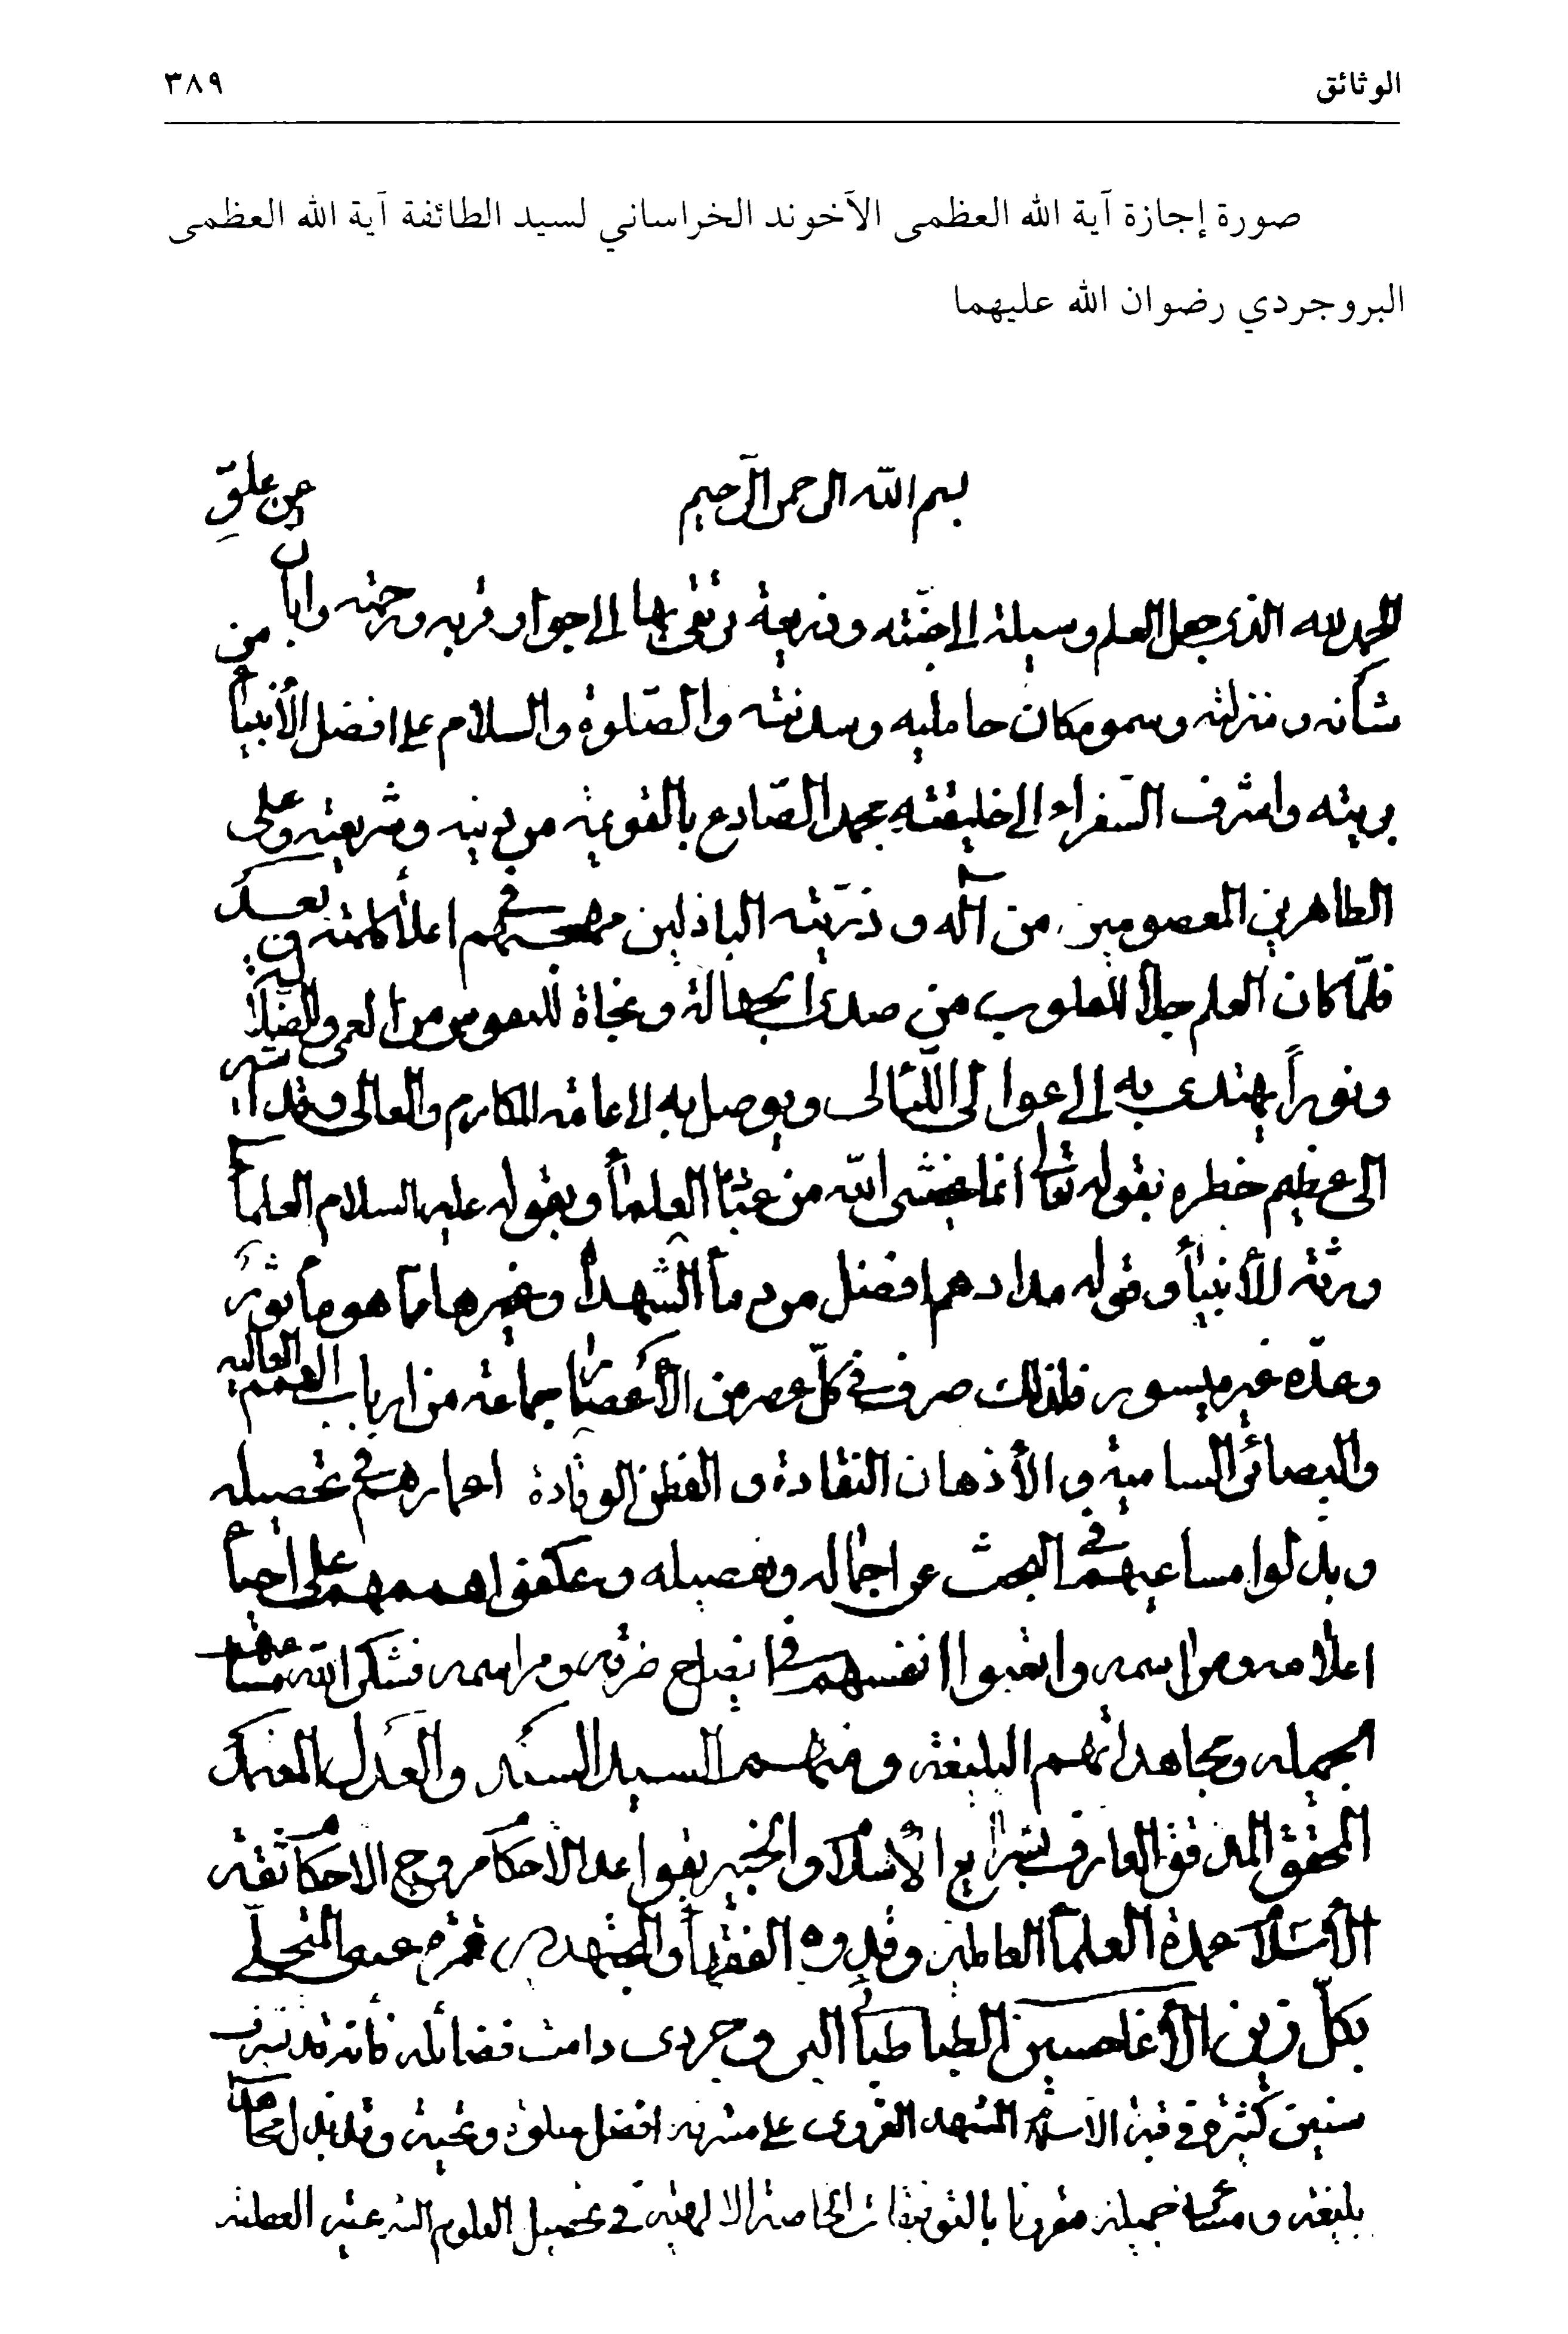 الوثائق ٣٨٩
صورة إجازة آية الله العظمى الآخوند الخراساني لسيد الطائفة آية الله العظمى
البروجردي رضوان الله عليهما
بسم الله الرحمن الرحيم
عن علو
الحمد لله الذى جعل العلم وسيلة الى جنته وذريعة يرتقى بها الى جوار قربه ورحمته وابان
شأنه ومنزلته وسمو مكان حامليه وسدنته والصلوة والسلام على افضل الأنبياء من
بريته واشرف السفراء الى خليقته محمد الصادع بالقويمة من دينه وشريعته وعلى
الطاهرين المعصومين من آله وذريته الباذلين مهجهم في اعلاء كلمته وبعد
فلما كان العلم جلاء للقلوب من صدى الجهالة ونجاة للنفوس من العمى والضلالة
ونوراً يهتدى به الى عوالى اللئالى ويوصل به الى المكارم والمعالى وقد اشير
الى عظيم خطره بقوله تعالى انما يخشى الله من عباده العلماء وبقوله عليه السلام العلماء
ورثة الأنبياء وقوله مداد هم افضل من دماء الشهداء وغيرها مما هو مأثور
وعدّه غير ميسور فلذلك صرف في كلّ عصر من الأعصار جماعة من ارباب الهمم العالية
والبصائر السامية والأذهان النقادة والفطن الوقادة اعمارهم في تحصيله
وبذلوا مساعيهم في البحث عن اجماله وتفصيله وعكفوا هممهم على احياء
اعلامه ومراسمه واتعبوا انفسهم في ايضاح ومراسمه فشكر الله مساعيهم
الجميله ومجاهداتهم البليغة ومنهم السيد السند والعدل المعتمد
المحقق المدقق العارف بشرايع الأسلام والخبير بقواعد الاحكام مروج الاحكام ثقة
الأسلام عمدة العلماء العاملين وقدوة الفقهاء والمجتهدين المتحلى
بكلّ زين الأغا حسين الطباطبائى البروجردى دامت فضائله فأنه قد تشرف
سنين كثيرة في قبة الاسلام المشهد الغروى على مشرفه افضل صلوة وتحية وقد بذل
بليغة ومساعى جميلة مقرونا بالتوفيقات الخاصة الالهية في تحصيل العلوم الشرعية العملية